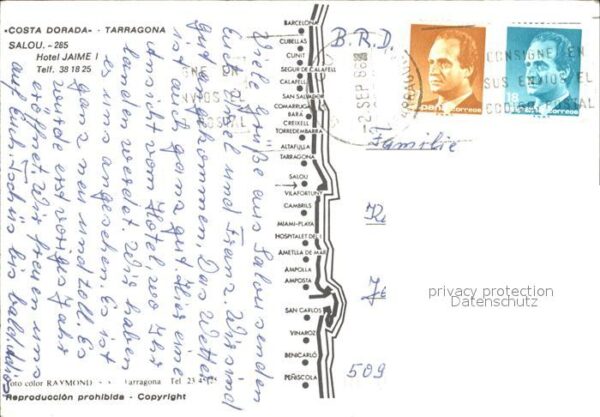 «COSTA DORADA» - TARRAGONA
SALOU. - 285
Hotel JAIME I
Telf. 38 18 25
Viele Grüße aus Salou senden
Euch und Franz. Wir sind
gut angekommen. Das Wetter
ist auch ganz gut. Hier eine
Ansicht vom Hotel, wo Ihr
landen werdet. Wir haben
es uns angesehen. Es ist
ganz neu und toll. Es
wurde erst voriges Jahr
eröffnet. Wir freuen uns
auf Euch. Tschüs bis bald.
BARCELONA
CUBELLAS
CUNIT
SEGUR DE CALAFELL
CALAFELL
SAN SALVADOR
COMARRUGA
BARÁ
CREIXELL
TORREDEMBARRA
ALTAFULLA
TARRAGONA
SALOU
VILAFORTUNY
CAMBRILS
MIAMI-PLAYA
HOSPITALET DEL I.
AMETLLA DE MAR
AMPOLLA
AMPOSTA
SAN CARLOS
VINAROZ
BENICARLÓ
PEÑISCOLA
B.R.D.
-2 SEP 88
CONSIGNE EN
SUS ENVIOS EL
CODIGO POSTAL
España correos
18
Familie
509
privacy protection
Datenschutz
Foto color RAYMOND Tarragona Tel 23 45
Reproducción prohibida - Copyright